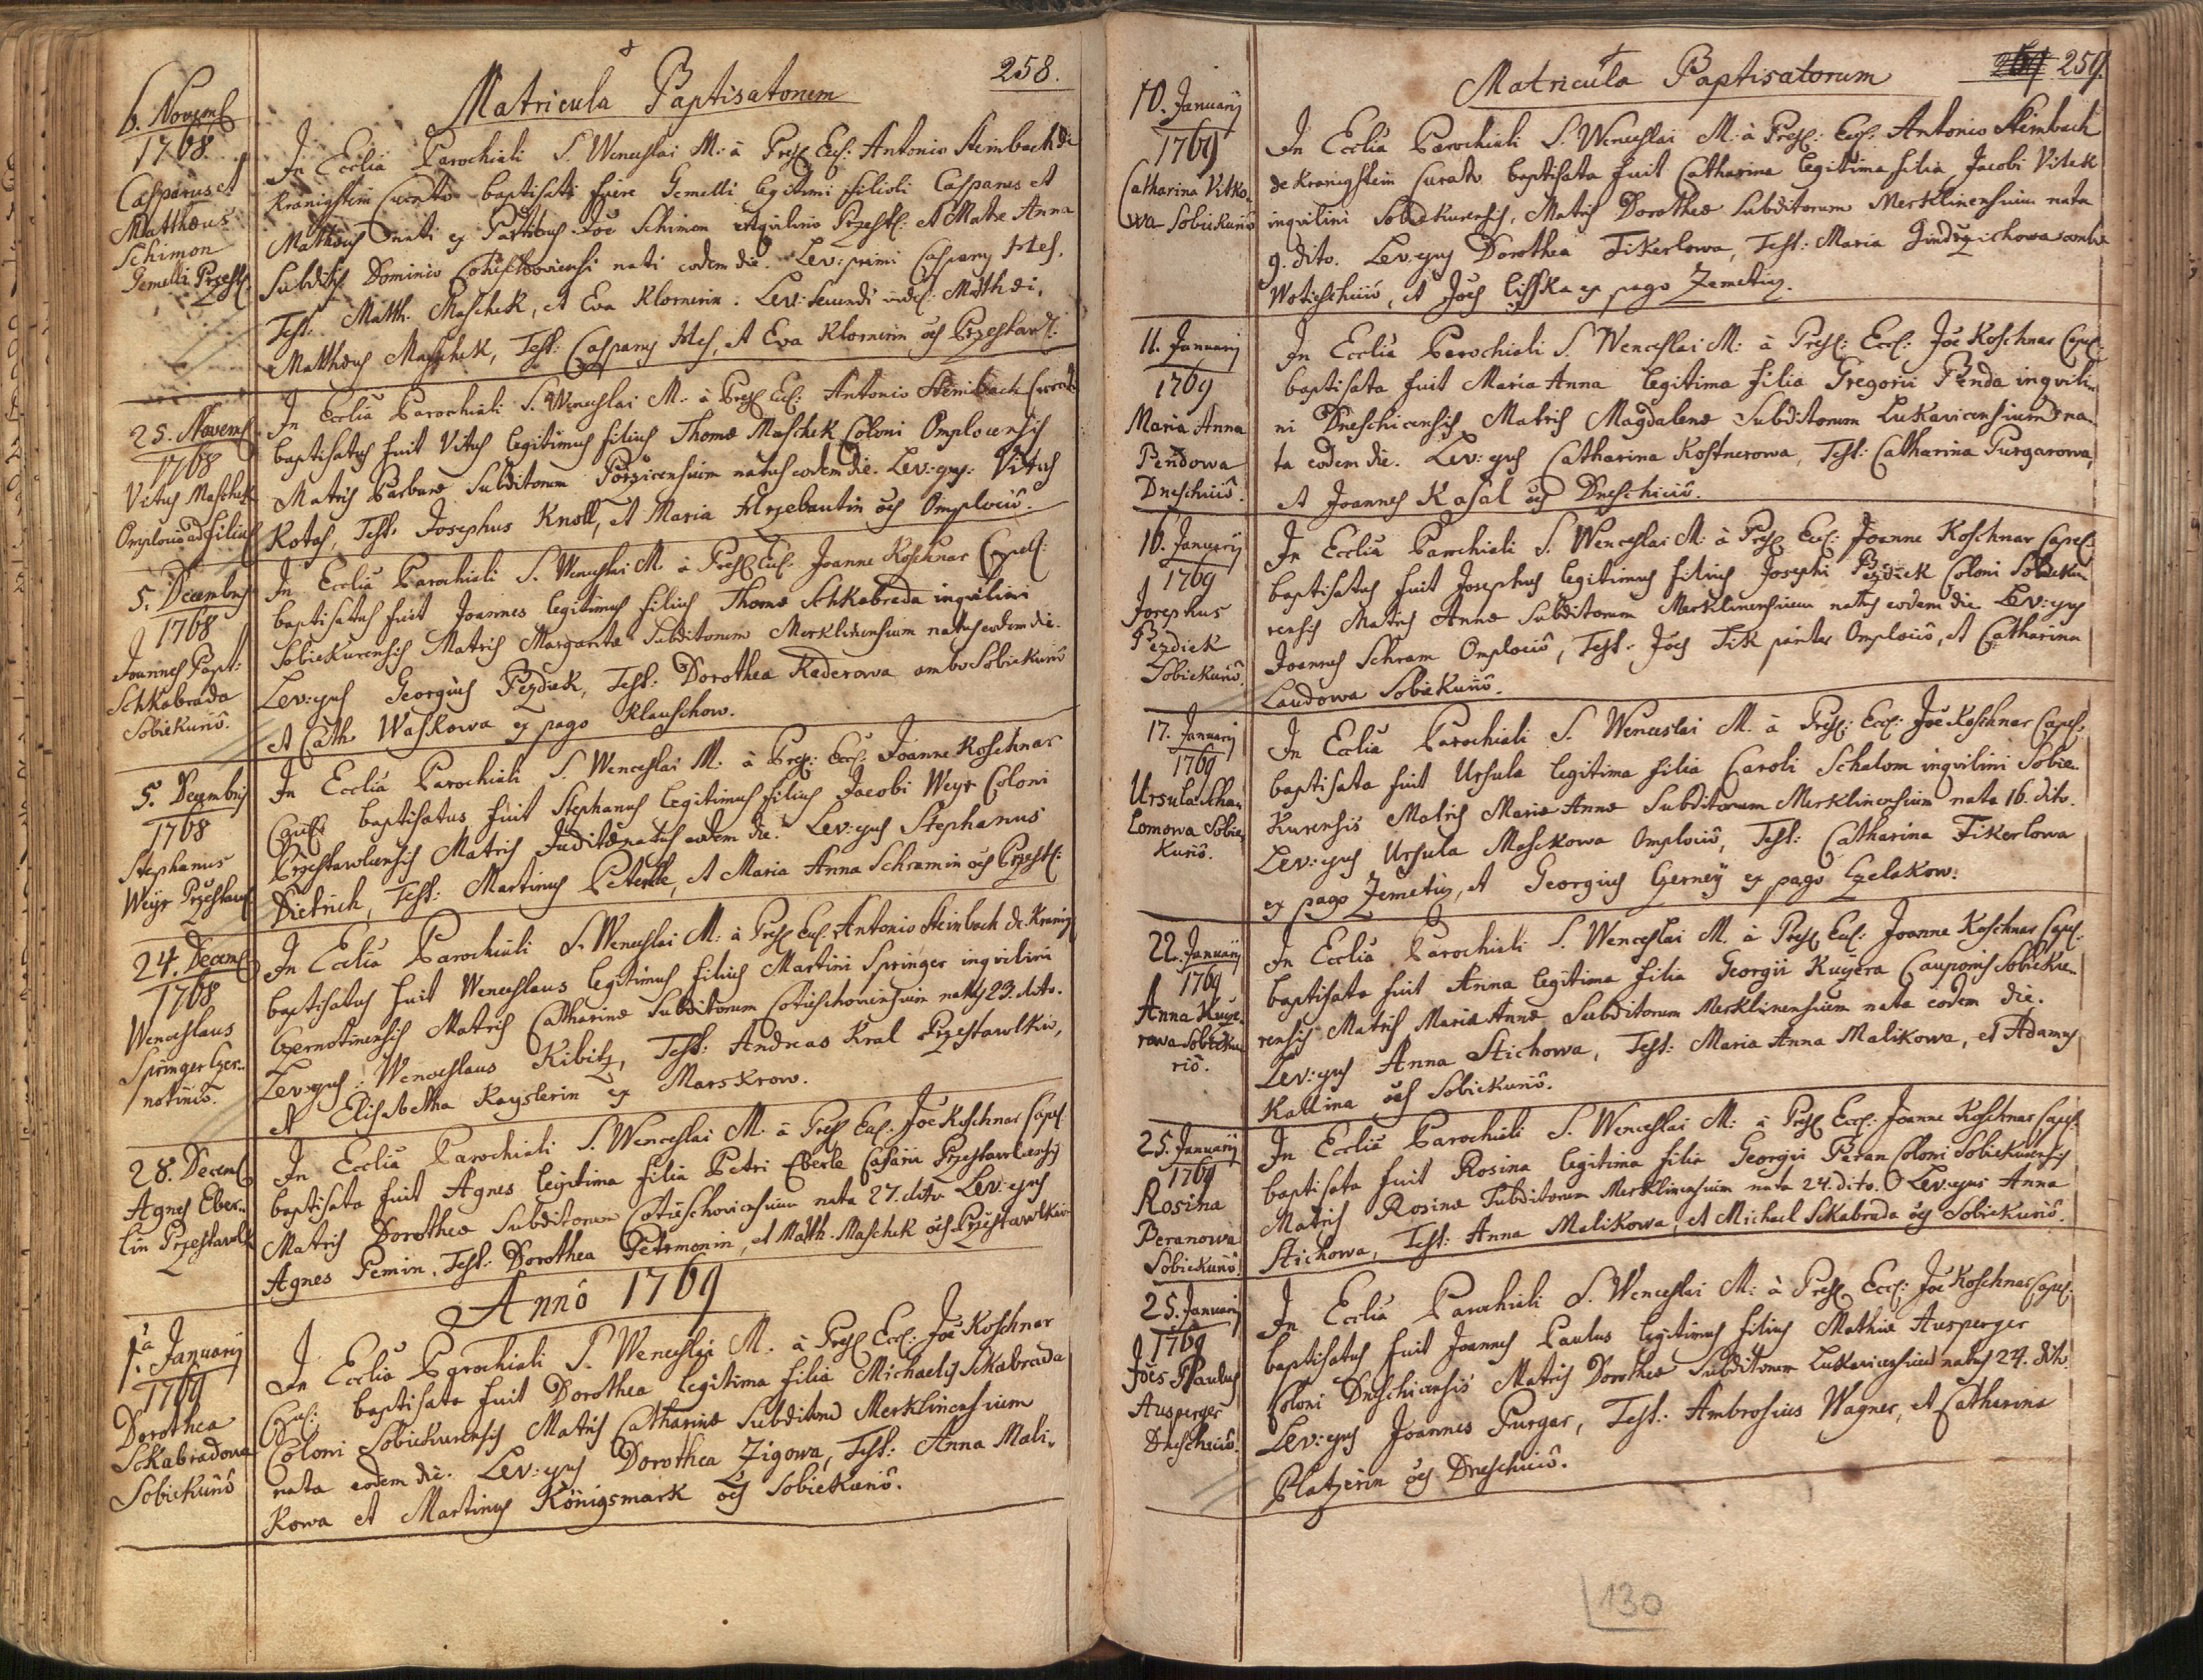 258.
Matricula Baptisatorum
6. Novembr
1768.
Casparus et
Matthæus
Schimon
Gemelli Przest.
In Ecclia Parochiali S. Wenceslai M: à Presb: Eccl: Antonio Steinbach de
Kranigstein Curato baptisati fuere Gemelli legitimi filioli Casparus et
Matthæus nati ex Partibus Joe Schimon inqvilino Przestl: et Matre Anna
Subditis Dominio Cotieschoviensi nati eodem die. Lev: primi Caspary Hes,
Test: Matth. Maschek, et Eva Klornerin. Lev: secundi videl: Matthæi,
Matthæus Maschek, Test: Casparus Hes, et Eva Klornerin oēs Przestavl:
25. Novemb
1768
Vitus Maschek
Omplouio ad filius
In Ecclia Parochiali S. Wenceslai M: à Presb Eccl: Antonio Steinbach Curato
baptisatus fuit Vitus legitimus filius Thomæ Maschek Coloni Omplocensis
Matris Barbaræ Subditorum Porzicensium natus eodem die. Lev: ejus: Vitus
Kotas, Test: Josephus Knoll, et Maria Hrzebautin oēs Omplociô.
5. Decembris
1768
Joannes Bapt:
Schkabrada
Sobiekuriô.
In Ecclia Parochiali S. Wenceslai M à Presb Eccl: Joanne Koschnar Capell:
baptisatus fuit Joannes legitimus filius Thomæ Schkabrada inqvilini
Sobiekurensis Matris Margaritæ Subditorum Merklinensium natus eodem die.
Lev: ejus Georgius Pezdiek, Test: Dorothea Kaderowa ambo Sobiekuriô
et Cath: Waskowa ex pago Klauschow.
5. Decembris
1768
Stephanus
Weyr Przestawl:
In Ecclia Parochiali S. Wenceslai M: à Presb: Eccl: Joanne Koschnar
Capell: baptisatus fuit Stephanus legitimus filius Jacobi Weyr Coloni
Przestawlcensis Matris Judithæ natus eodem die. Lev: ejus Stephanus
Dietrich, Test: Martinus Peterlle, et Maria Anna Schramin oēs Przestl:
24. Decemb
1768
Wenceslaus
Springer Czer-
notiniô.
In Ecclia Parochiali S. Wenceslai M: à Presb Eccl: Antonio Steinbach de Kranig:
baptisatus fuit Wenceslaus legitimus filius Martini Springer inqvilini
Czernotinensis Matris Catharinæ Subditorum Cotieschoviensium natus 23. dito.
Lev: ejus: Wenceslaus Kibitz, Test: Andreas Kral Przestawlkiô,
et Elisabetha Kayslerin ex Marskrow.
28. Decemb
Agnes Eber-
lin Przestawlk
In Ecclia Parochiali S. Wenceslai M: à Presb Eccl: Joe Koschnar Capel:
baptisata fuit Agnes legitima filia Petri Eberle Casarii Przestawlcensis
Matris Dorotheæ Subditorum Cotieschoviensium nata 27. dito Lev: ejus
Agnes Pemin, Test: Dorothea Petrmonin, et Matth. Maschek oēs Przestawlkiô
Annô 1769
1.a January
1769
Dorothea
Sckabradowa
Sobiekuriô
In Ecclia Parochiali S. Wenceslai M. à Presb Eccl: Joe Koschnar
Capel: baptisata fuit Dorothea legitima filia Michaelis Sckabrada
Coloni Sobiekurensis Matris Catharinæ Subditorum Merklinensium
nata eodem die. Lev: ejus Dorothea Zigowa, Test: Anna Mali-
kowa et Martinus Königsmark oēs Sobiekuriô.
259.
Matricula Baptisatorum
10. January
1769
Catharina Vitko-
wa Sobiekuriô
In Ecclia Parochiali S. Wenceslai M: à Presb: Eccl: Antonio Steinbach
de Kranigstein Curato baptisata fuit Catharina legitima filia Jacobi Vitek
inqvilini Sobiekurensis, Matris Dorotheæ Subditorum Merklinensium nata
9. dito. Lev: ejus Dorothea Fikerlowa, Test: Maria Jindrzichowa
Wotieschiciô, et Joēs Lisska ex pago Zemetiz.
11. January
1769
Maria Anna
Pendowa
Dneschiciô.
In Ecclia Parochiali S. Wenceslai M: à Presb: Eccl: Joe Koschnar Capel:
baptisata fuit Maria Anna legitima filia Gregorii Penda inqvili-
ni Dneschicensis Matris Magdalenæ Subditorum Lukavicensium na-
ta eodem die. Lev: ejus Catharina Kostnerowa, Test: Catharina Purgarowa,
et Joannes Kasal oēs Dneschiciô.
16. January
1769
Josephus
Pezdiek
Sobiekuriô.
In Ecclia Parochiali S. Wenceslai M: à Presb Eccl: Joanne Koschnar Capel:
baptisatus fuit Josephus legitimus filius Josephi Pezdiek Coloni Sobieku-
rensis Matris Annæ Subditorum Merklinensium natus eodem die Lev: ejus
Joannes Schram Omplociô, Test: Joēs Fik pariter Omplociô, et Catharina
Laudowa Sobiekuriô.
17. January
1769
Ursula Scha-
lomowa Sobie-
kuriô.
In Ecclia Parochiali S. Wenceslai M. à Presb: Eccl: Joe Koschnar Capel:
baptisata fuit Ursula legitima filia Caroli Schalom inqvilini Sobie-
kurensis Matris Mariæ Annæ Subditorum Merklinensium nata 16. dito.
Lev: ejus Ursula Maschkowa Omplociô, Test: Catharina Fikerlowa
ex pago Zemetiz, et Georgius Czerney ex pago Czelakow:
22. January
1769
Anna Kuče-
rowa Sobieku-
riô.
In Ecclia Parochiali S. Wenceslai M. à Presb Eccl: Joanne Koschnar Capel:
baptisata fuit Anna legitima filia Georgii Kučera Cauponis Sobieku-
rensis Matris Mariæ Annæ Subditorum Merklinensium nata eodem die.
Lev: ejus Anna Stichowa, Test: Maria Anna Malikowa, et Adamus
Kallina oēs Sobiekuriô.
25. January
1769
Rosina
Beranowa
Sobiekuriô.
In Ecclia Parochiali S. Wenceslai M: à Presb Eccl: Joanne Koschnar Capel:
baptisata fuit Rosina legitima filia Georgii Peran Coloni Sobiekurensis
Matris Rosinæ Subditorum Merklinensium nata 24. dito. Lev: ejus Anna
Stichowa, Test: Anna Malikowa, et Michael Sckabrada oēs Sobiekuriô.
25. January
1769
Joēs Paulus
Ausperger
Dneschiciô.
In Ecclia Parochiali S. Wenceslai M: à Presb Eccl: Joe Koschnar Capel:
baptisatus fuit Joannes Paulus legitimus filius Mathiæ Ausperger
Coloni Dneschicensis Matris Dorotheæ Subditorum Lukavicensium natus 24. dito.
Lev: ejus Joannes Purgar, Test: Ambrosius Wagner, et Catharina
Platzerin oēs Dneschiciô.
130